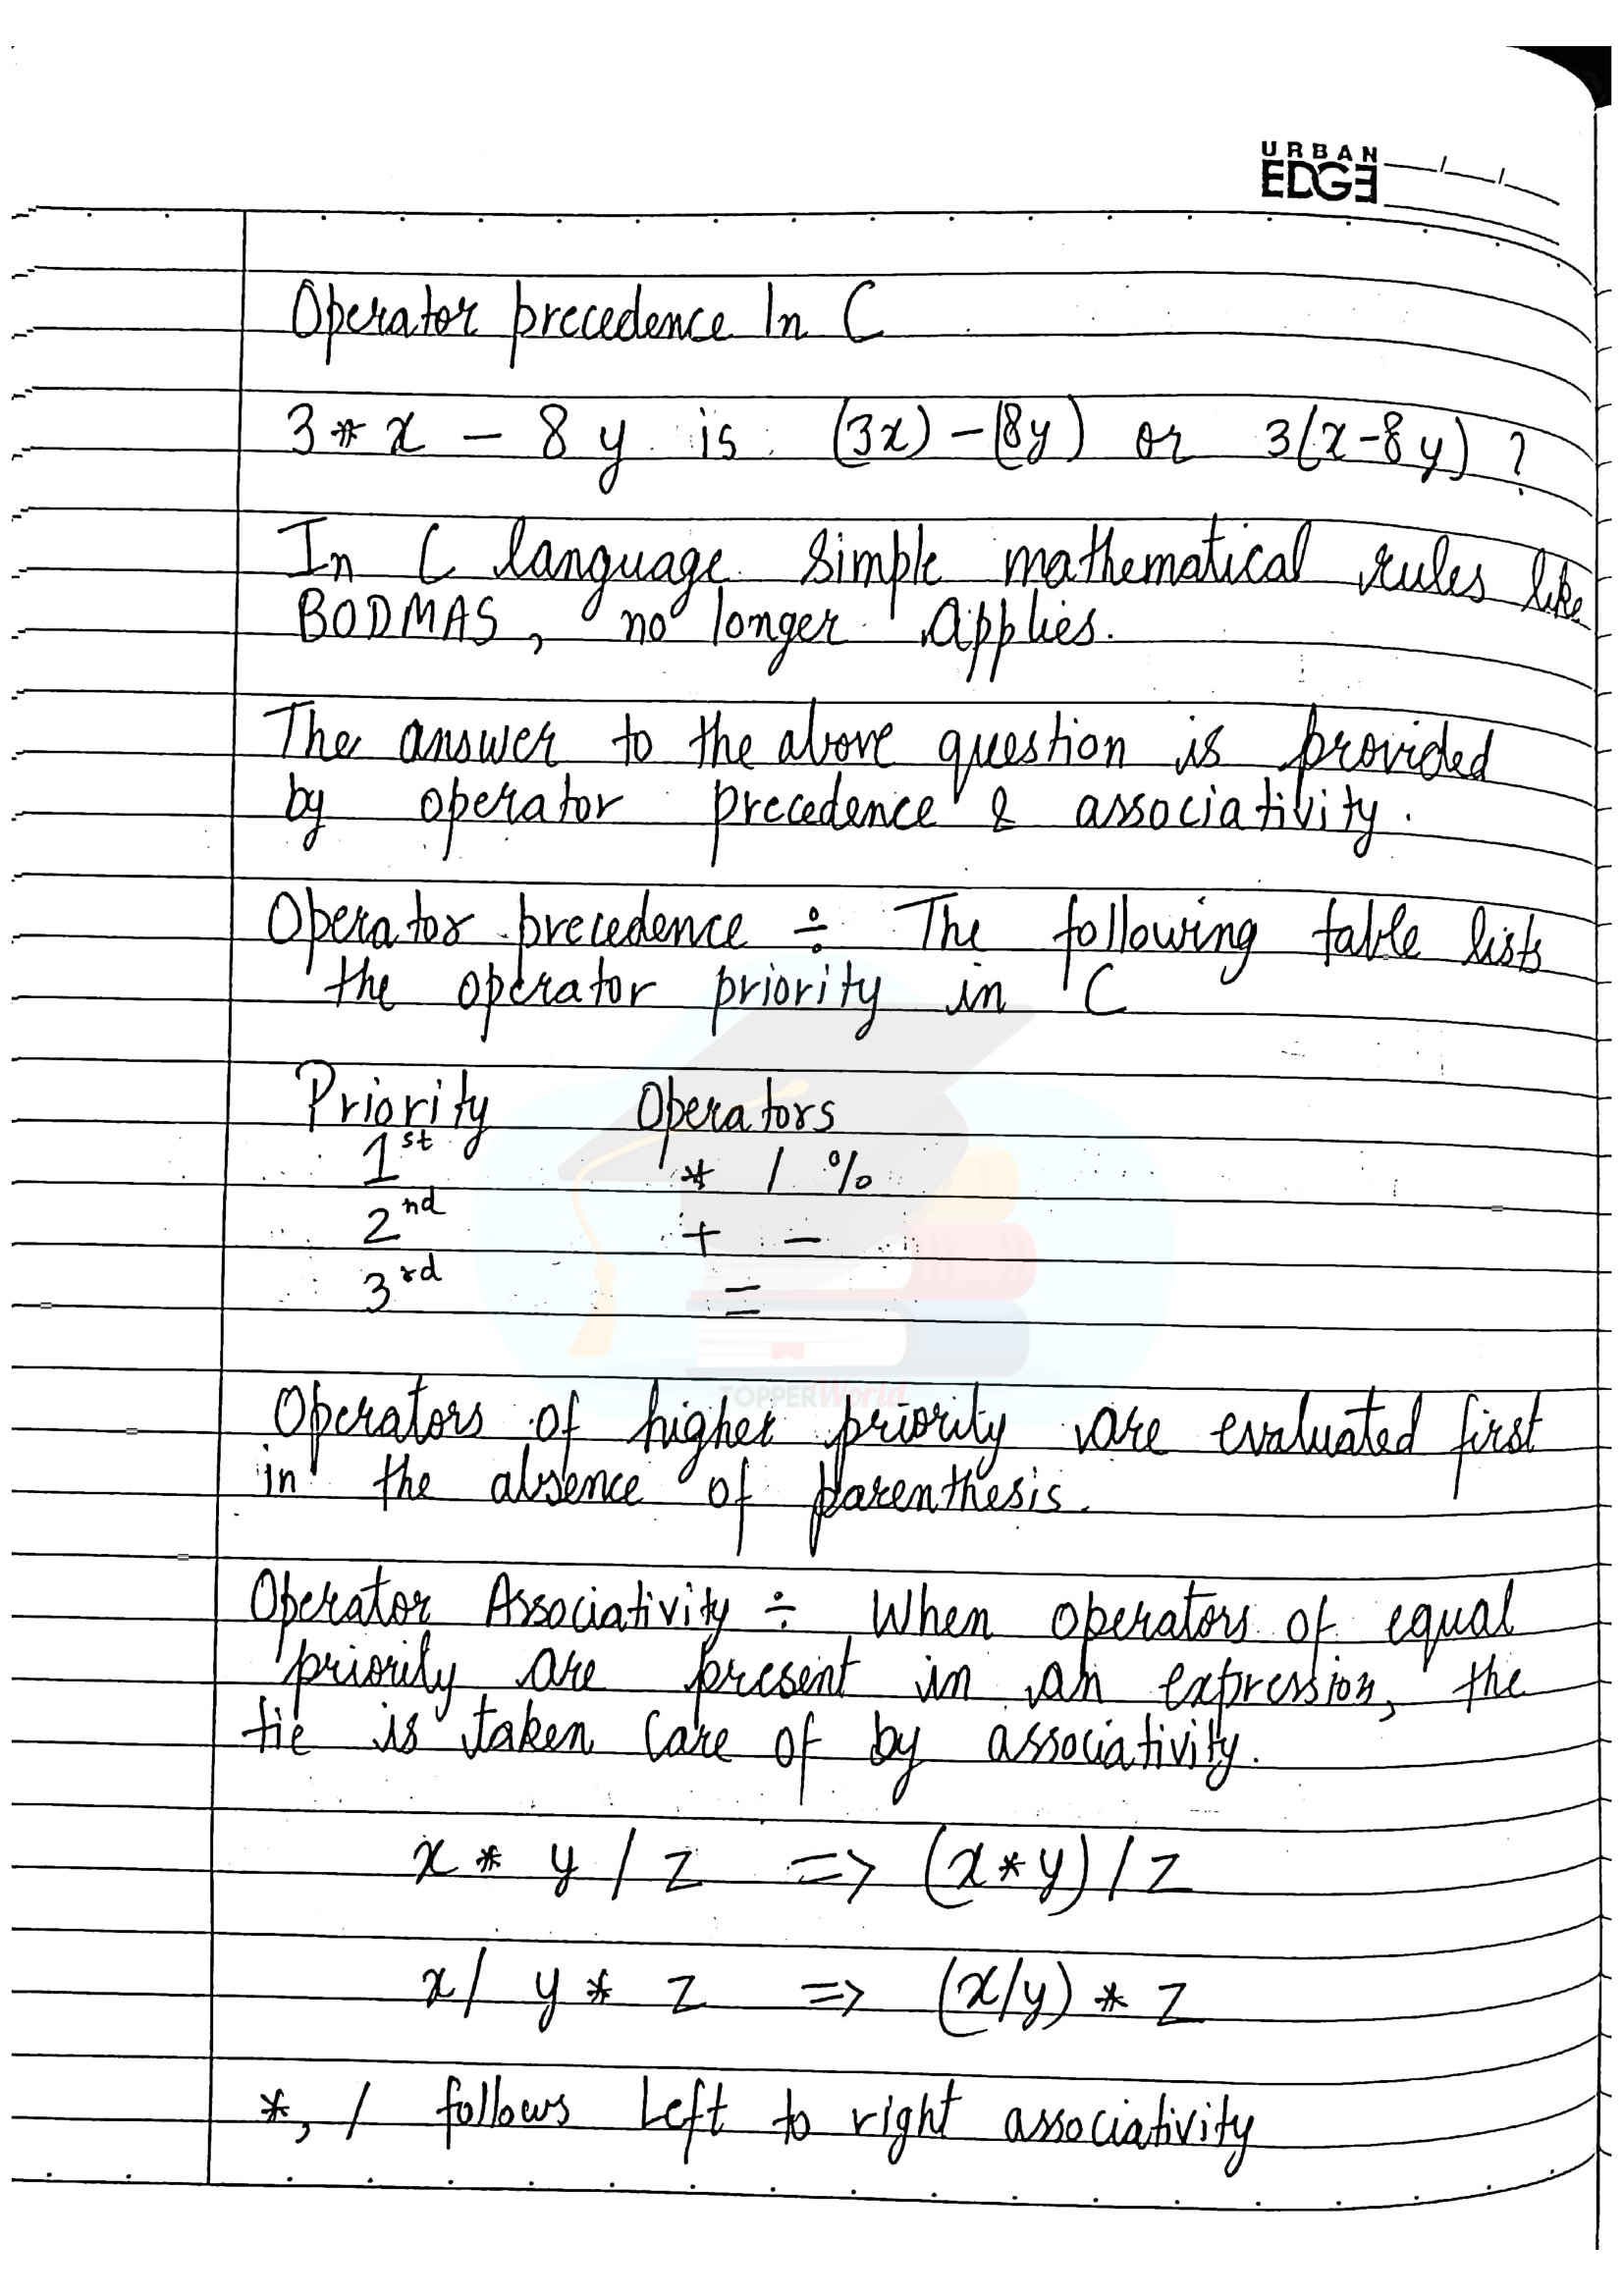 URBAN
EDGE
Operator precedence In C
3 * x - 8 y is (3x) - (8y) or 3(x-8y) ?
In C language simple mathematical rules like
BODMAS, no longer applies.
The answer to the above question is provided
by operator precedence & associativity.
Operator precedence ÷ The following table lists
the operator priority in C
Priority Operators
1st * / %
2nd + -
3rd =
TOPPERWorld
Operators of higher priority are evaluated first
in the absence of parenthesis.
Operator Associativity ÷ When operators of equal
priority are present in an expression, the
tie is taken care of by associativity.
x * y / z => (x*y)/z
x/ y * z => (x/y) * z
*, / follows left to right associativity